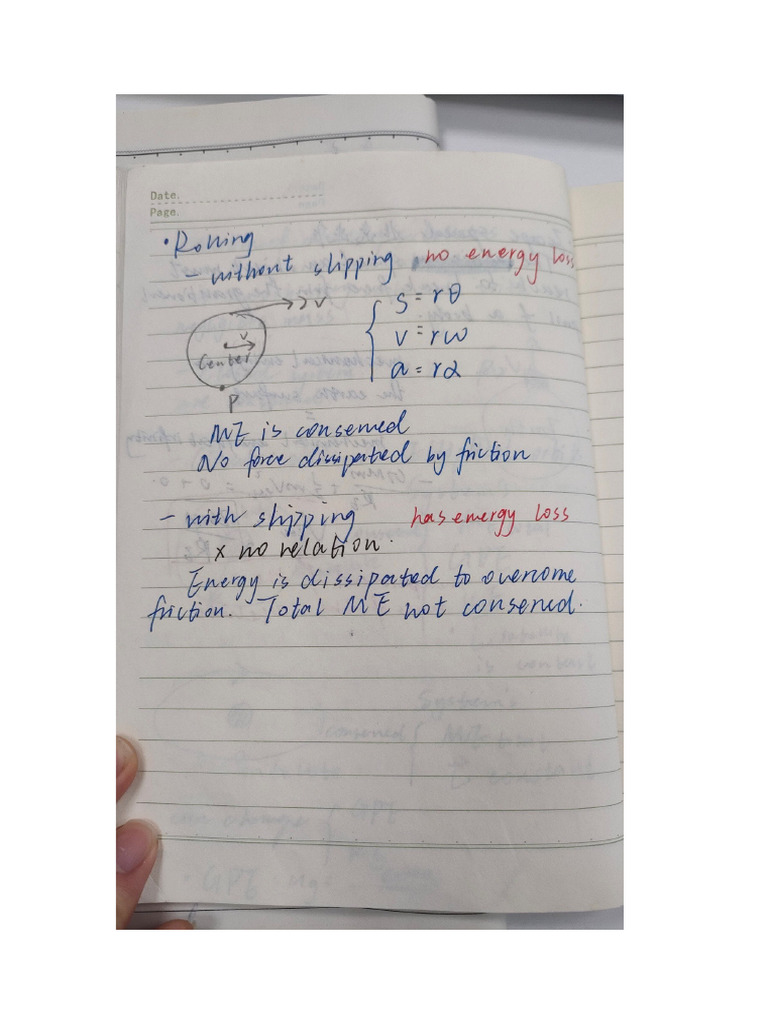 Date.
Page.
• Rolling
- without slipping no energy loss
2v
s = rθ
v
v = rω
Center
a = rα
P
ME is conserved
No force dissipated by friction
- with slipping has energy loss
x no relation.
Energy is dissipated to overcome
friction. Total ME not conserved.